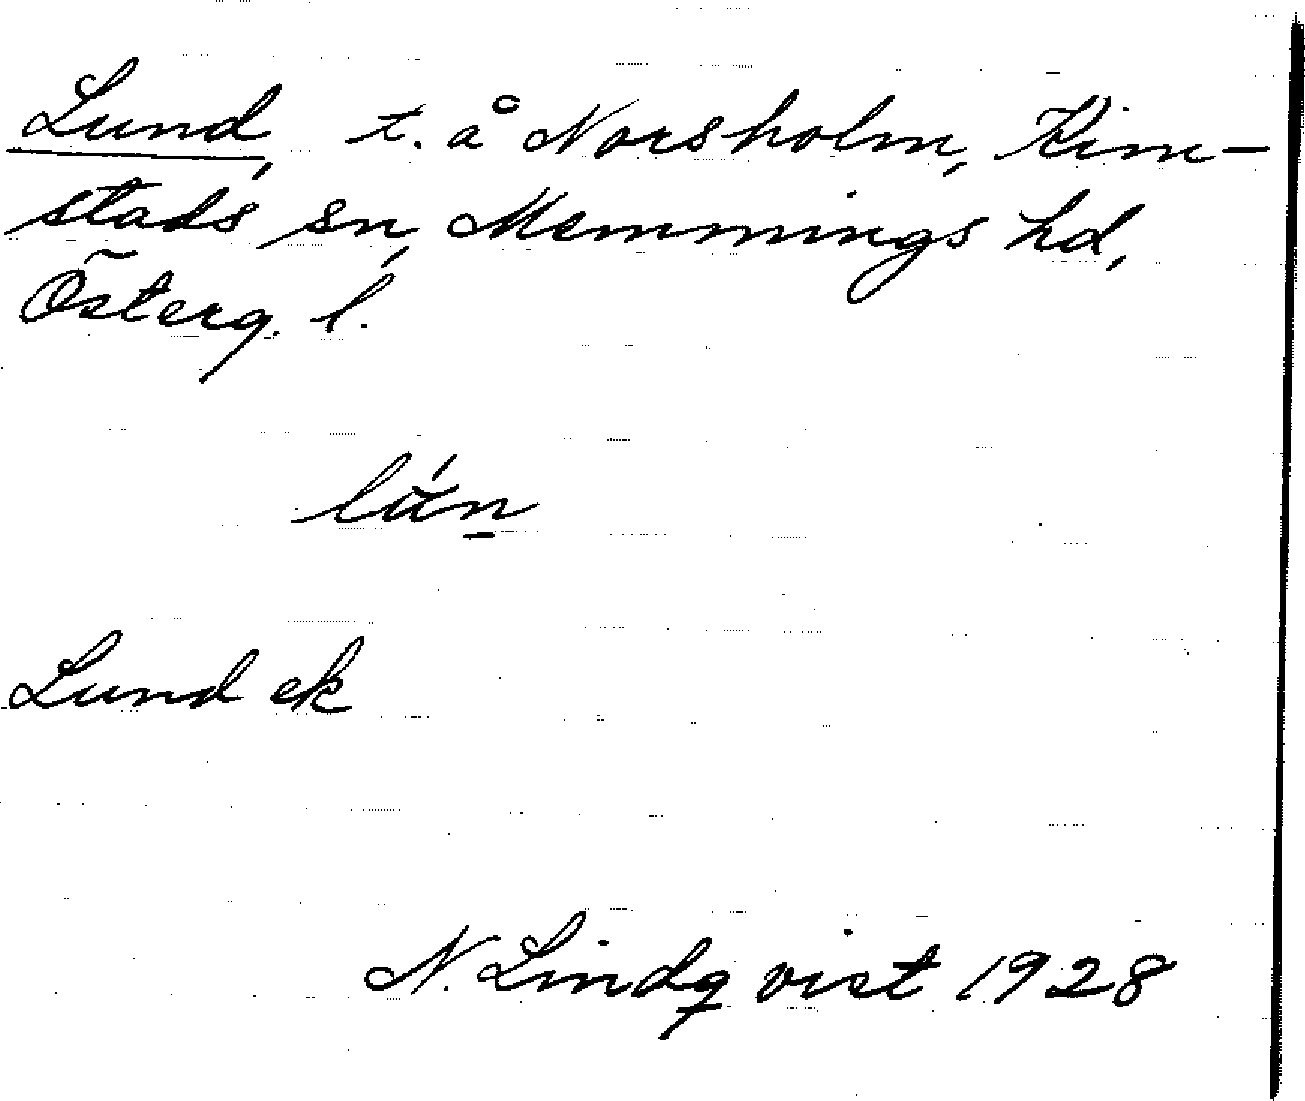 Lund, t. å Norsholm, Kim-
stads sn, Memmings hd,
Österg. l.
lún
Lund ek
N. Lindqvist 1928